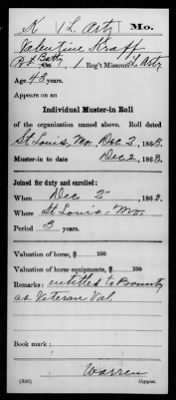 K 1 L. Arty Mo.
Valentine Kraff
Batty 1 Reg't Missouri L. Arty
Age 43 years.
Appears on an
Individual Muster-in Roll
of the organization named above. Roll dated
St. Louis, Mo. Dec 2, 1863.
Muster-in to date Dec 2, 1863.
Joined for duty and enrolled:
When Dec 2, 1863.
Where St Louis, Mo.
Period 3 years.
Valuation of horse, $ 100
Valuation of horse equipments, $ 100
Remarks: entitled to Bounty
as Veteran Vol.
Book mark:
Warren
Copyist.